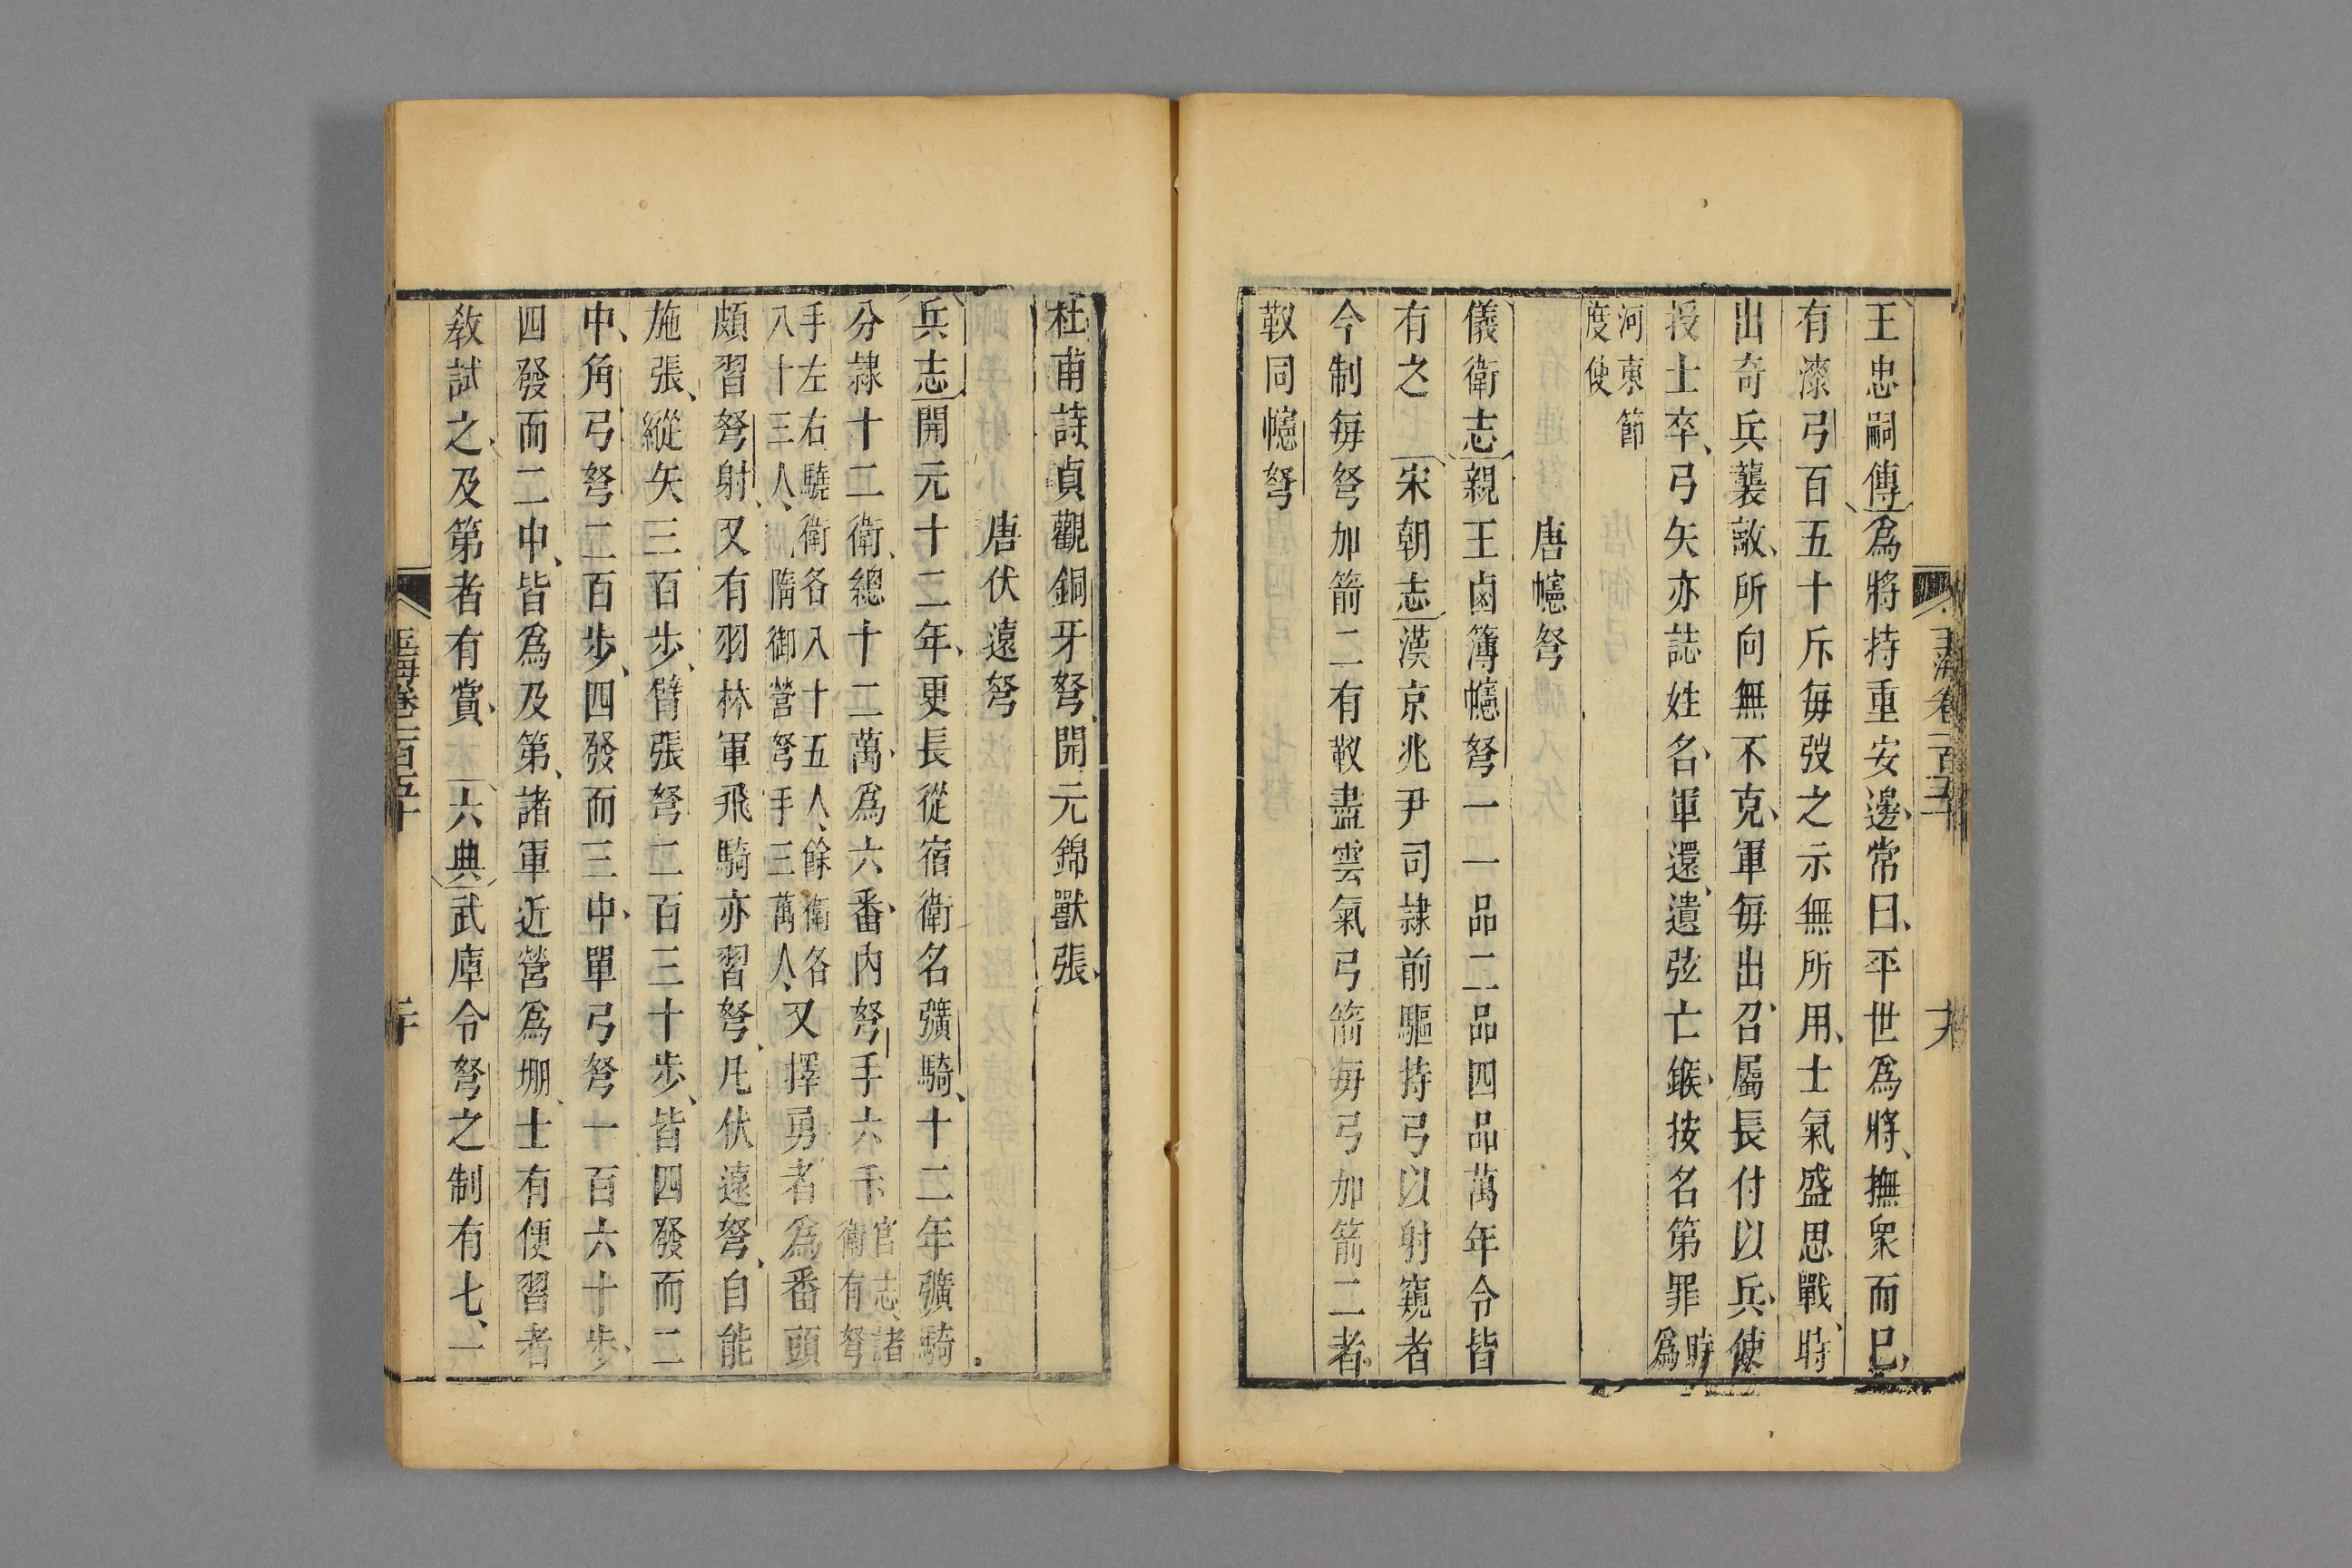 王忠嗣傳爲將持重安邊、常曰、平世爲將、撫衆而巳、
有漆弓百五十斤每弢之示無所用、士氣盛思戰、時
出奇兵襲敵、所向無不克、軍每出、召屬長付以兵、使
授士卒、弓矢亦誌姓名、軍還、遺弦亡鏃、按名第罪時爲
河東節
度使
唐幰弩
儀衛志親王鹵簿幰弩一一品二品四品萬年令皆
有之宋朝志漢京兆尹司隷前驅持弓以射窺者
今制每弩加箭二有靫畫雲氣弓箭每弓加箭二者
靫同幰弩
玉海卷一百五十
十九
杜甫詩貞觀銅牙弩、開元錦獸張、
唐伏遠弩
兵志開元十二年、更長從宿衛名彍騎、十二年彍騎
分隷十二衛、總十二萬、爲六番、內弩手六千官志、諸
衛有弩
手左右驍衛各八十五人、餘衛各
八十三人、隋御營弩手三萬人、又擇勇者爲番頭
頗習弩射、又有羽林軍飛騎亦習弩、凡伏遠弩、自能
施張、縱矢三百步、臂張弩二百三十步、皆四發而二
中、角弓弩二百步、四發而三中、單弓弩一百六十步、
四發而二中、皆爲及第、諸軍近營爲堋、士有便習者
敎試之、及第者有賞、六典武庫令弩之制有七、一
玉海卷一百五十
二十